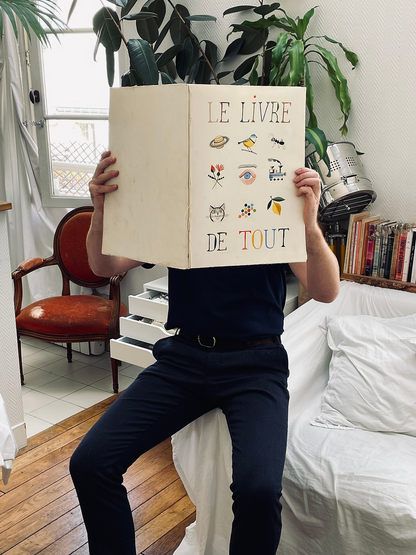 LE LIVRE
DE TOUT